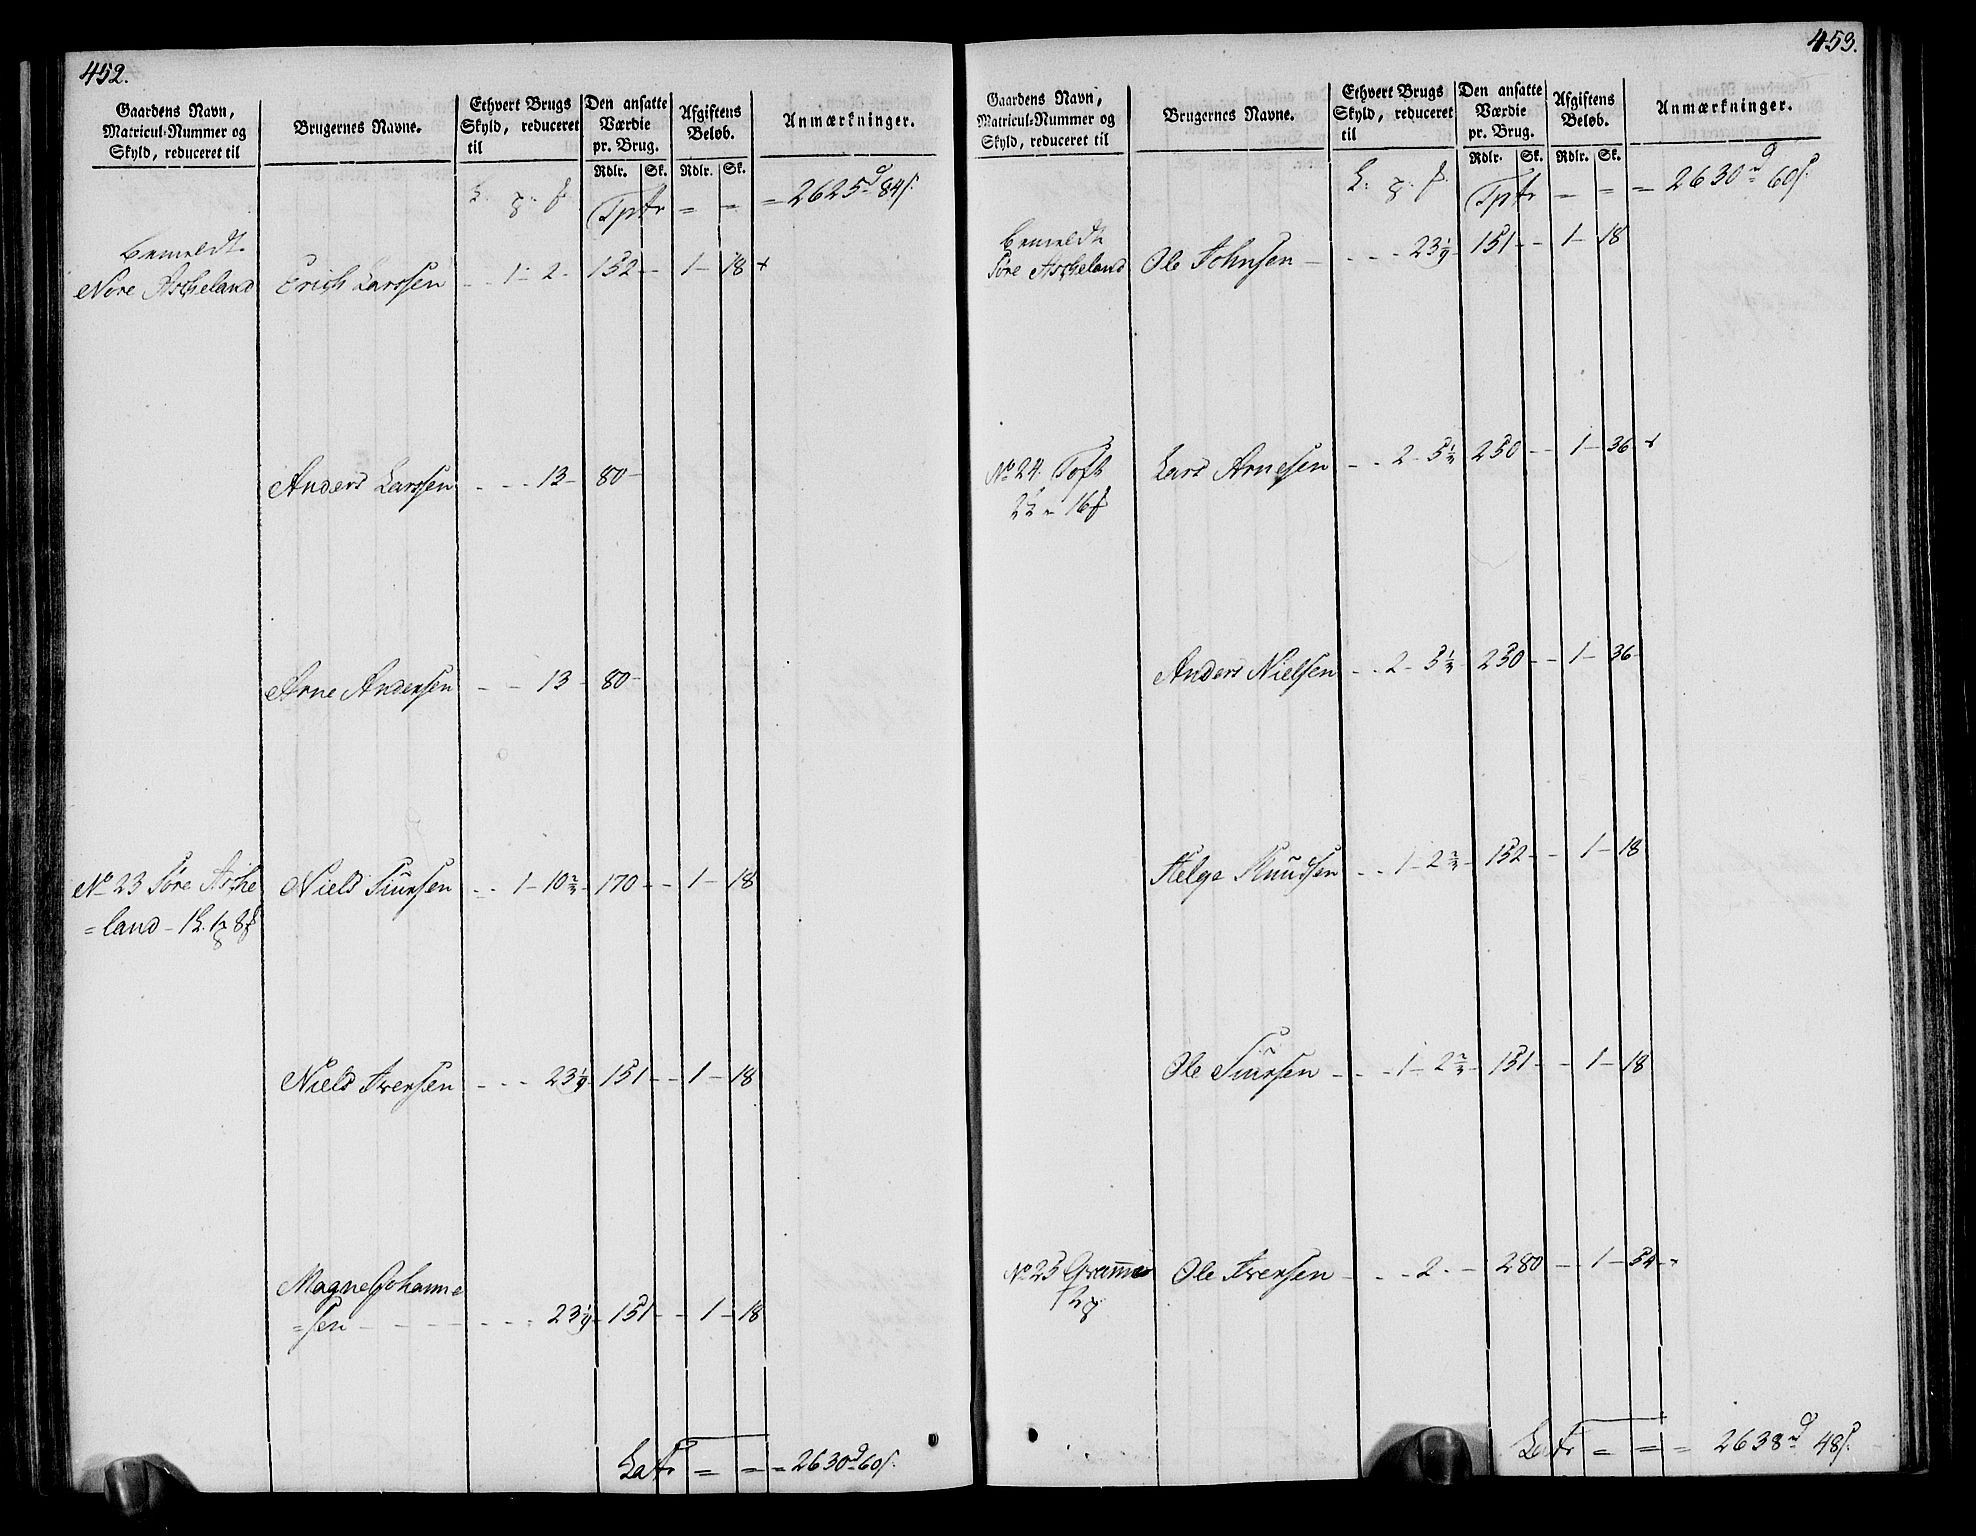 452.
Gaardens Navn, Matricul-Nummer og Skyld, reduceret til | Brugernes Navne. | Ethvert Brugs Skyld, reduceret til | Den ansatte Værdie pr. Brug. | Afgiftens Beløb. | Anmærkninger.
Rdlr. Sk. Rdlr. Sk.
Tptr = = = 2625 d 84 s.
bemeldte
Nore Ascheland Erich Larssen - - 1 - 2 - 152 - - 1 - 18 +
Anders Larssen - - - 13 - 80 -
Arne Andersen - - 13 - 80 -
No 23 Søre Asche Niels Siursen - - 1 - 10 2/3 - 170 - - 1 - 18
=land - 1 L. 1 8
Niels Iversen - - - 23 1/9 - 151 - - 1 - 18
Magne Johanne
=sen - - - - 23 1/9 - 151 - - 1 - 18
Latr = = = 2630 d 60 s.
453.
Gaardens Navn, Matricul-Nummer og Skyld, reduceret til | Brugernes Navne. | Ethvert Brugs Skyld, reduceret til | Den ansatte Værdie pr. Brug. | Afgiftens Beløb. | Anmærkninger.
Rdlr. Sk. Rdlr. Sk.
Tptr = = = 2630 d 60 s.
bemeldte
Søre Ascheland Ole Johnsen - - - - 23 1/9 - 151 - - 1 - 18
No 24. Toft Lars Arnesen - - 2 - 5 1/3 250 - - 1 - 36 +
22 - 16
Anders Nielsen - - 2 - 5 1/3 - 250 - - 1 - 36 -
Helge Knudsen - - 1 - 2 2/3 - 152 - - 1 - 18
Ole Siursen - - - 1 - 2 2/3 - 151 - - 1 - 18
No 25 Gramme Ole Iversen - - - 2 - - 280 - - 1 - 54
Latr = = = 2638 d 48 s.